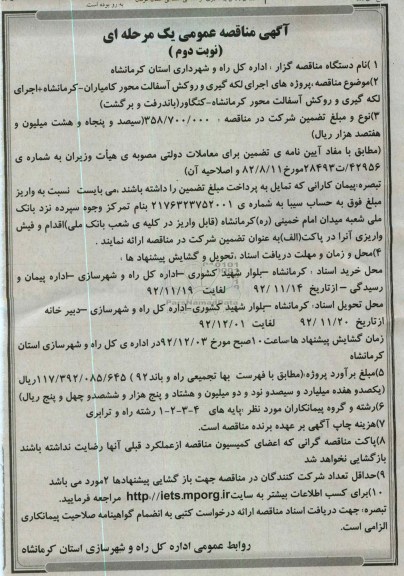 آگهی مناقصه عمومی یک مرحله ای
(نوبت دوم )
۱ )نام دستگاه مناقصه گزار : اداره کل راه و شهرداری استان کرمانشاه
۲)موضوع مناقصه:پروژه های اجرای لکه گیری و روکش آسفالت محور کامیاران-کرمانشاه+اجرای
لکه گیری و روکش آسفالت محور کرمانشاه-کنگاور(باندرفت و برگشت)
۳)نوع و مبلغ تضمین شرکت در مناقصه : ۳۵۸/۷۰۰/۰۰۰(سیصد و پنجاه و هشت میلیون و
هفتصد هزار ریال)
(مطابق با مفاد آیین نامه ی تضمین برای معاملات دولتی مصوبه ی هیأت وزیران به شماره ی
۴۲۹۵۶/ت۲۸۴۹۳مورخ۸۲/۸/۱۱ و اصلاحیه آن)
تبصره:پیمان کارانی که تمایل به پرداخت مبلغ تضمین را داشته باشند ،می بایست نسبت به واریز
مبلغ فوق به حساب سیبا به شماره ی ۲۱۷۶۳۲۳۷۵۲۰۰۱ بنام تمرکز وجوه سپرده نزد بانک
ملی شعبه میدان امام خمینی (ره)کرمانشاه (قابل واریز در کلیه ی شعب بانک ملی)اقدام و فیش
واریزی آنرا در پاکت(الف)به عنوان تضمین شرکت در مناقصه ارائه نمایند .
۴)محل و زمان و مهلت دریافت اسناد ،تحویل و گشایش پیشنهاد ها :
محل خرید اسناد : کرمانشاه –بلوار شهید کشوری –اداره کل راه و شهرسازی –اداره پیمان و
رسیدگی – ازتاریخ ۹۲/۱۱/۱۴ لغایت ۹۲/۱۱/۱۹
محل تحویل اسناد: کرمانشاه –بلوار شهید کشوری–اداره کل راه و شهرسازی –دبیر خانه
ازتاریخ ۹۲/ ۱۱/۲۰ لغایت ۹۲/۱۲/۰۱
زمان گشایش پیشنهاد ها:ساعت۱۰صبح مورخ ۹۲/۱۲/۰۳در اداره ی کل راه و شهرسازی استان
کرمانشاه
۵)مبلغ برآورد پروژه:(مطابق با فهرست بها تجمیعی راه و باند۹۲ ) ۱۱۷/۳۹۲/۰۸۵/۶۴۵ریال
(یکصدو هفده میلیارد و سیصدو نود و دو میلیون و هشتاد و پنج هزار و ششصدو چهل و پنج ریال)
۶)رشته و گروه پیمانکاران مورد نظر :پایه های ۴-۳-۲-۱ رشته راه و ترابری
۷)هزینه چاپ آگهی بر عهده برنده مناقصه است.
۸)پاکت مناقصه گرانی که اعضای کمیسیون مناقصه ازعملکرد قبلی آنها رضایت نداشته باشند
بازگشایی نخواهد شد
۹)حداقل تعداد شرکت کنندگان در مناقصه جهت باز گشایی پیشنهادها ۲مورد می باشد
۱۰)برای کسب اطلاعات بیشتر به سایتhttp://iets.mporg.ir مراجعه فرمایید.
تبصره: جهت دریافت اسناد مناقصه ارائه درخواست کتبی به انضمام گواهینامه صلاحیت پیمانکاری
الزامی است.
روابط عمومی اداره کل راه و شهرسازی استان کرمانشاه